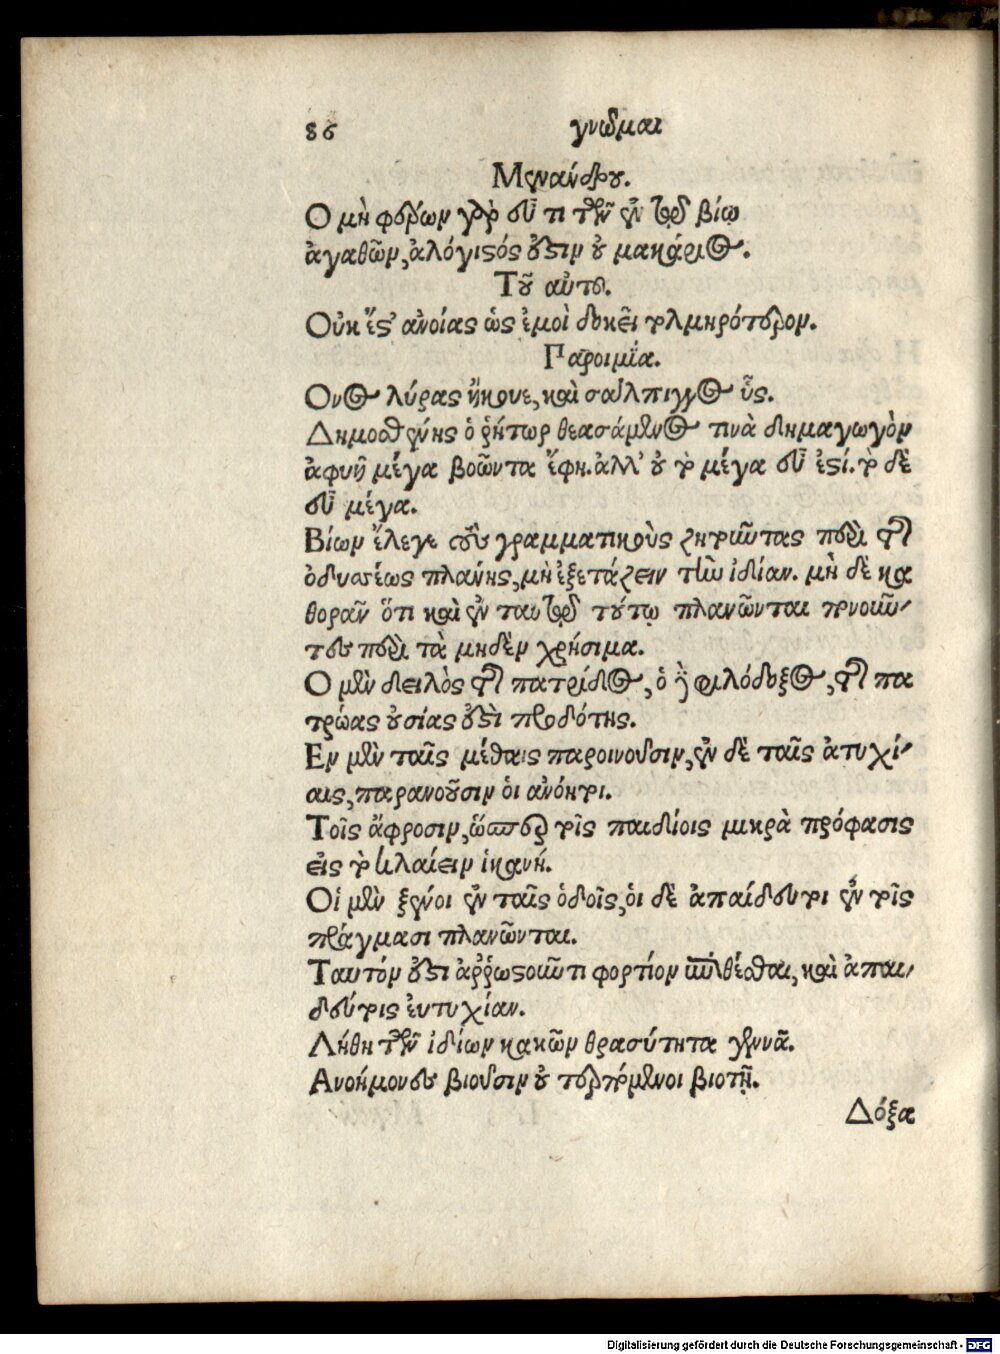 86 γνῶμαι
Μενάνδρου.
Ο μὴ φέρων γὰρ εὖ τι τῶν ἐν τῷ βίῳ
ἀγαθῶν, ἀλόγιστός ἐστιν οὐ μακάριος.
Τοῦ αὐτοῦ.
Οὐκ ἔστ' ἀνοίας ὡς ἐμοὶ δοκεῖ τολμηρότερον.
Παροιμία.
Ονος λύρας ἤκουε, καὶ σάλπιγγος ὗς.
Δημοσθένης ὁ ῥήτωρ θεασάμενος τινὰ δημαγωγὸν
ἀφυῆ μέγα βοῶντα ἔφη. ἀλλ' οὐ τὸ μέγα εὖ ἐστί. τὸ δὲ
εὖ μέγα.
Βίων ἔλεγε τοὺς γραμματικοὺς ζητοῦντας περὶ τῆς
ὀδυσσέως πλάνης, μὴ ἐξετάζειν τὴν ἰδίαν. μὴ δὲ κα
θορᾶν ὅτι καὶ ἐν ταυτῷ τούτῳ πλανῶνται πονοῦν-
τες περὶ τὰ μηδὲν χρήσιμα.
Ο μὲν δειλὸς τῆς πατρίδος, ὁ δὲ φιλόδοξος, τῆς πα
τρῴας οὐσίας ἐστὶ προδότης.
Εν μὲν ταῖς μέθαις παροινοῦσιν, ἐν δὲ ταῖς ἀτυχί-
αις, παρανοῦσιν ὁι ἀνόητοι.
Τοῖς ἄφροσιν, ὥσπερ τοῖς παιδίοις μικρὰ πρόφασις
εἰς τὸ κλαίειν ἱκανή.
Οἱ μὲν ξένοι ἐν ταῖς ὁδοῖς, ὁι δὲ ἀπαίδευτοι ἐν τοῖς
πράγμασι πλανῶνται.
Ταυτόν ἐστι ἀῤῥωστοῦντι φορτίον ἀναθέσθαι, καὶ ἀπαι-
δεύτοις ἐυτυχίαν.
Λήθη τῶν ἰδίων κακῶν θρασύτητα γεννᾶ.
Ανοήμονες βιοῦσιν οὐ τερπόμενοι βιοτῇ.
Δόξα
Digitalisierung gefördert durch die Deutsche Forschungsgemeinschaft - DFG